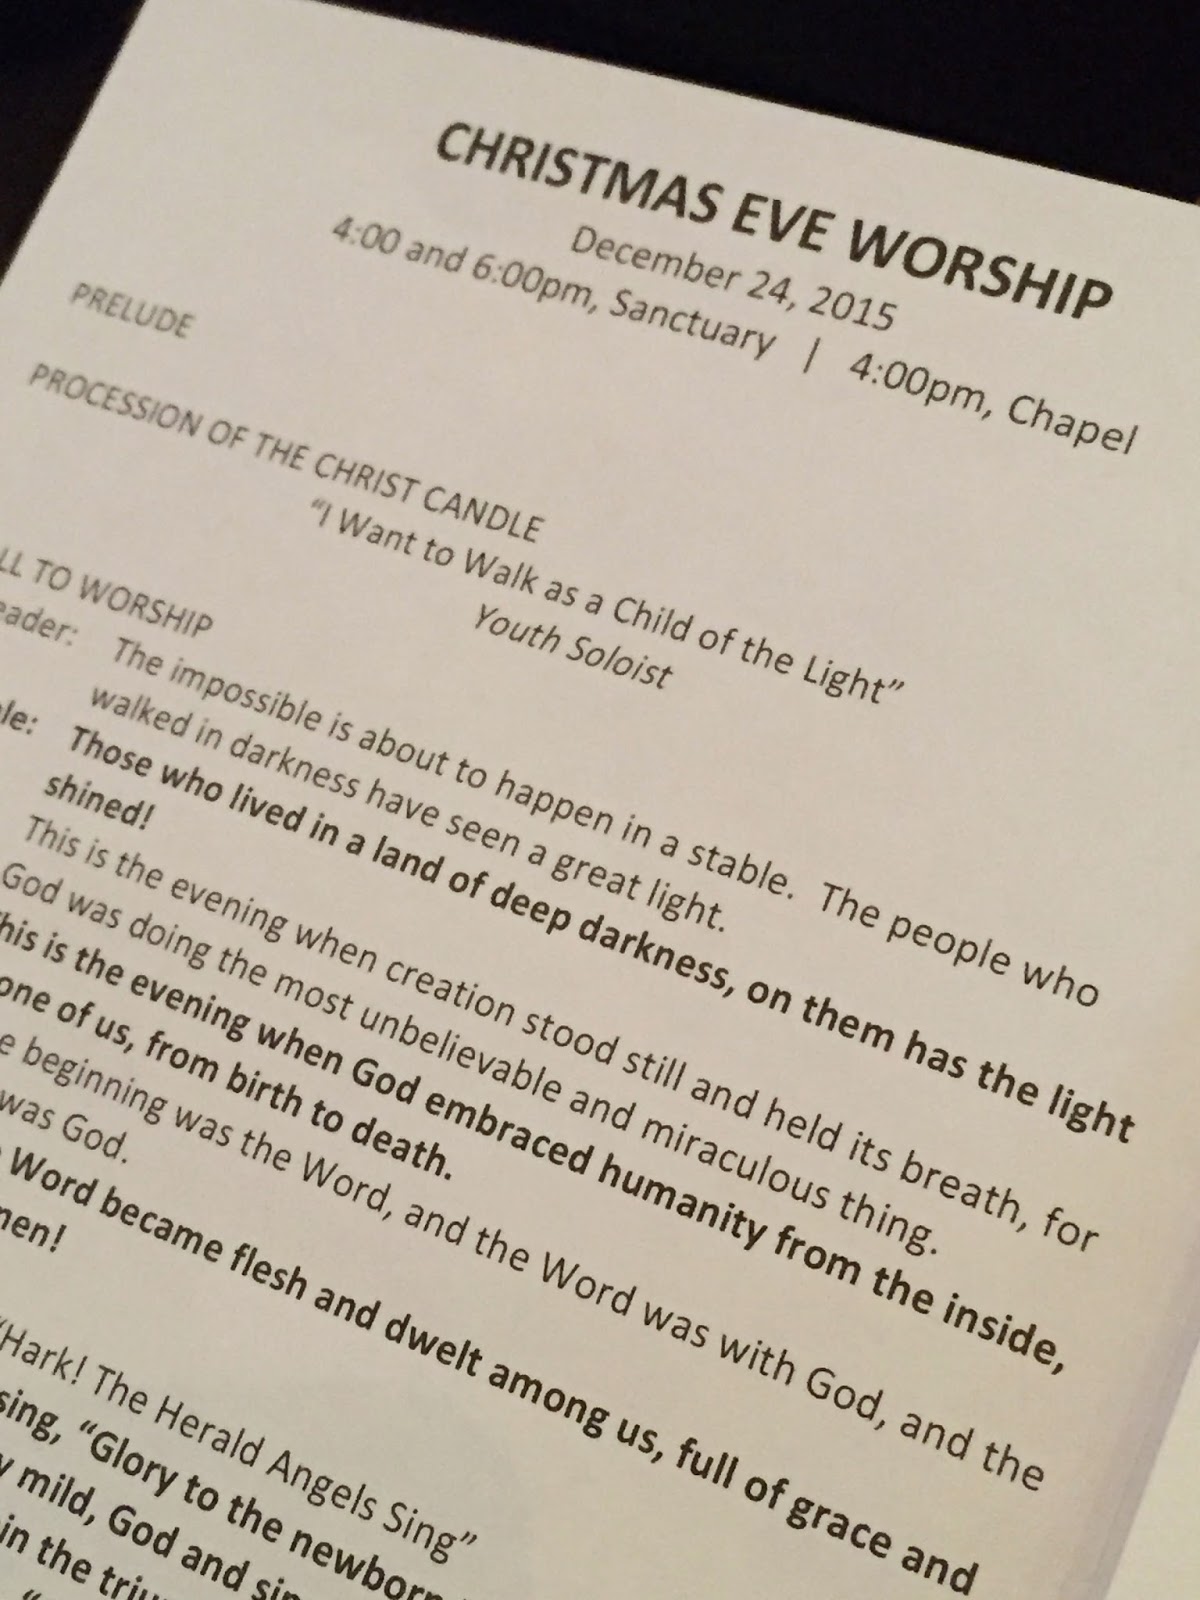 CHRISTMAS EVE WORSHIP
December 24, 2015
4:00 and 6:00pm, Sanctuary | 4:00pm, Chapel
PRELUDE
PROCESSION OF THE CHRIST CANDLE
“I Want to Walk as a Child of the Light”
Youth Soloist
LL TO WORSHIP
eader: The impossible is about to happen in a stable. The people who
walked in darkness have seen a great light.
ple: Those who lived in a land of deep darkness, on them has the light
shined!
This is the evening when creation stood still and held its breath, for
God was doing the most unbelievable and miraculous thing.
his is the evening when God embraced humanity from the inside,
one of us, from birth to death.
e beginning was the Word, and the Word was with God, and the
was God.
Word became flesh and dwelt among us, full of grace and
men!
“Hark! The Herald Angels Sing”
sing, “Glory to the newborn
y mild, God and sin
in the triu